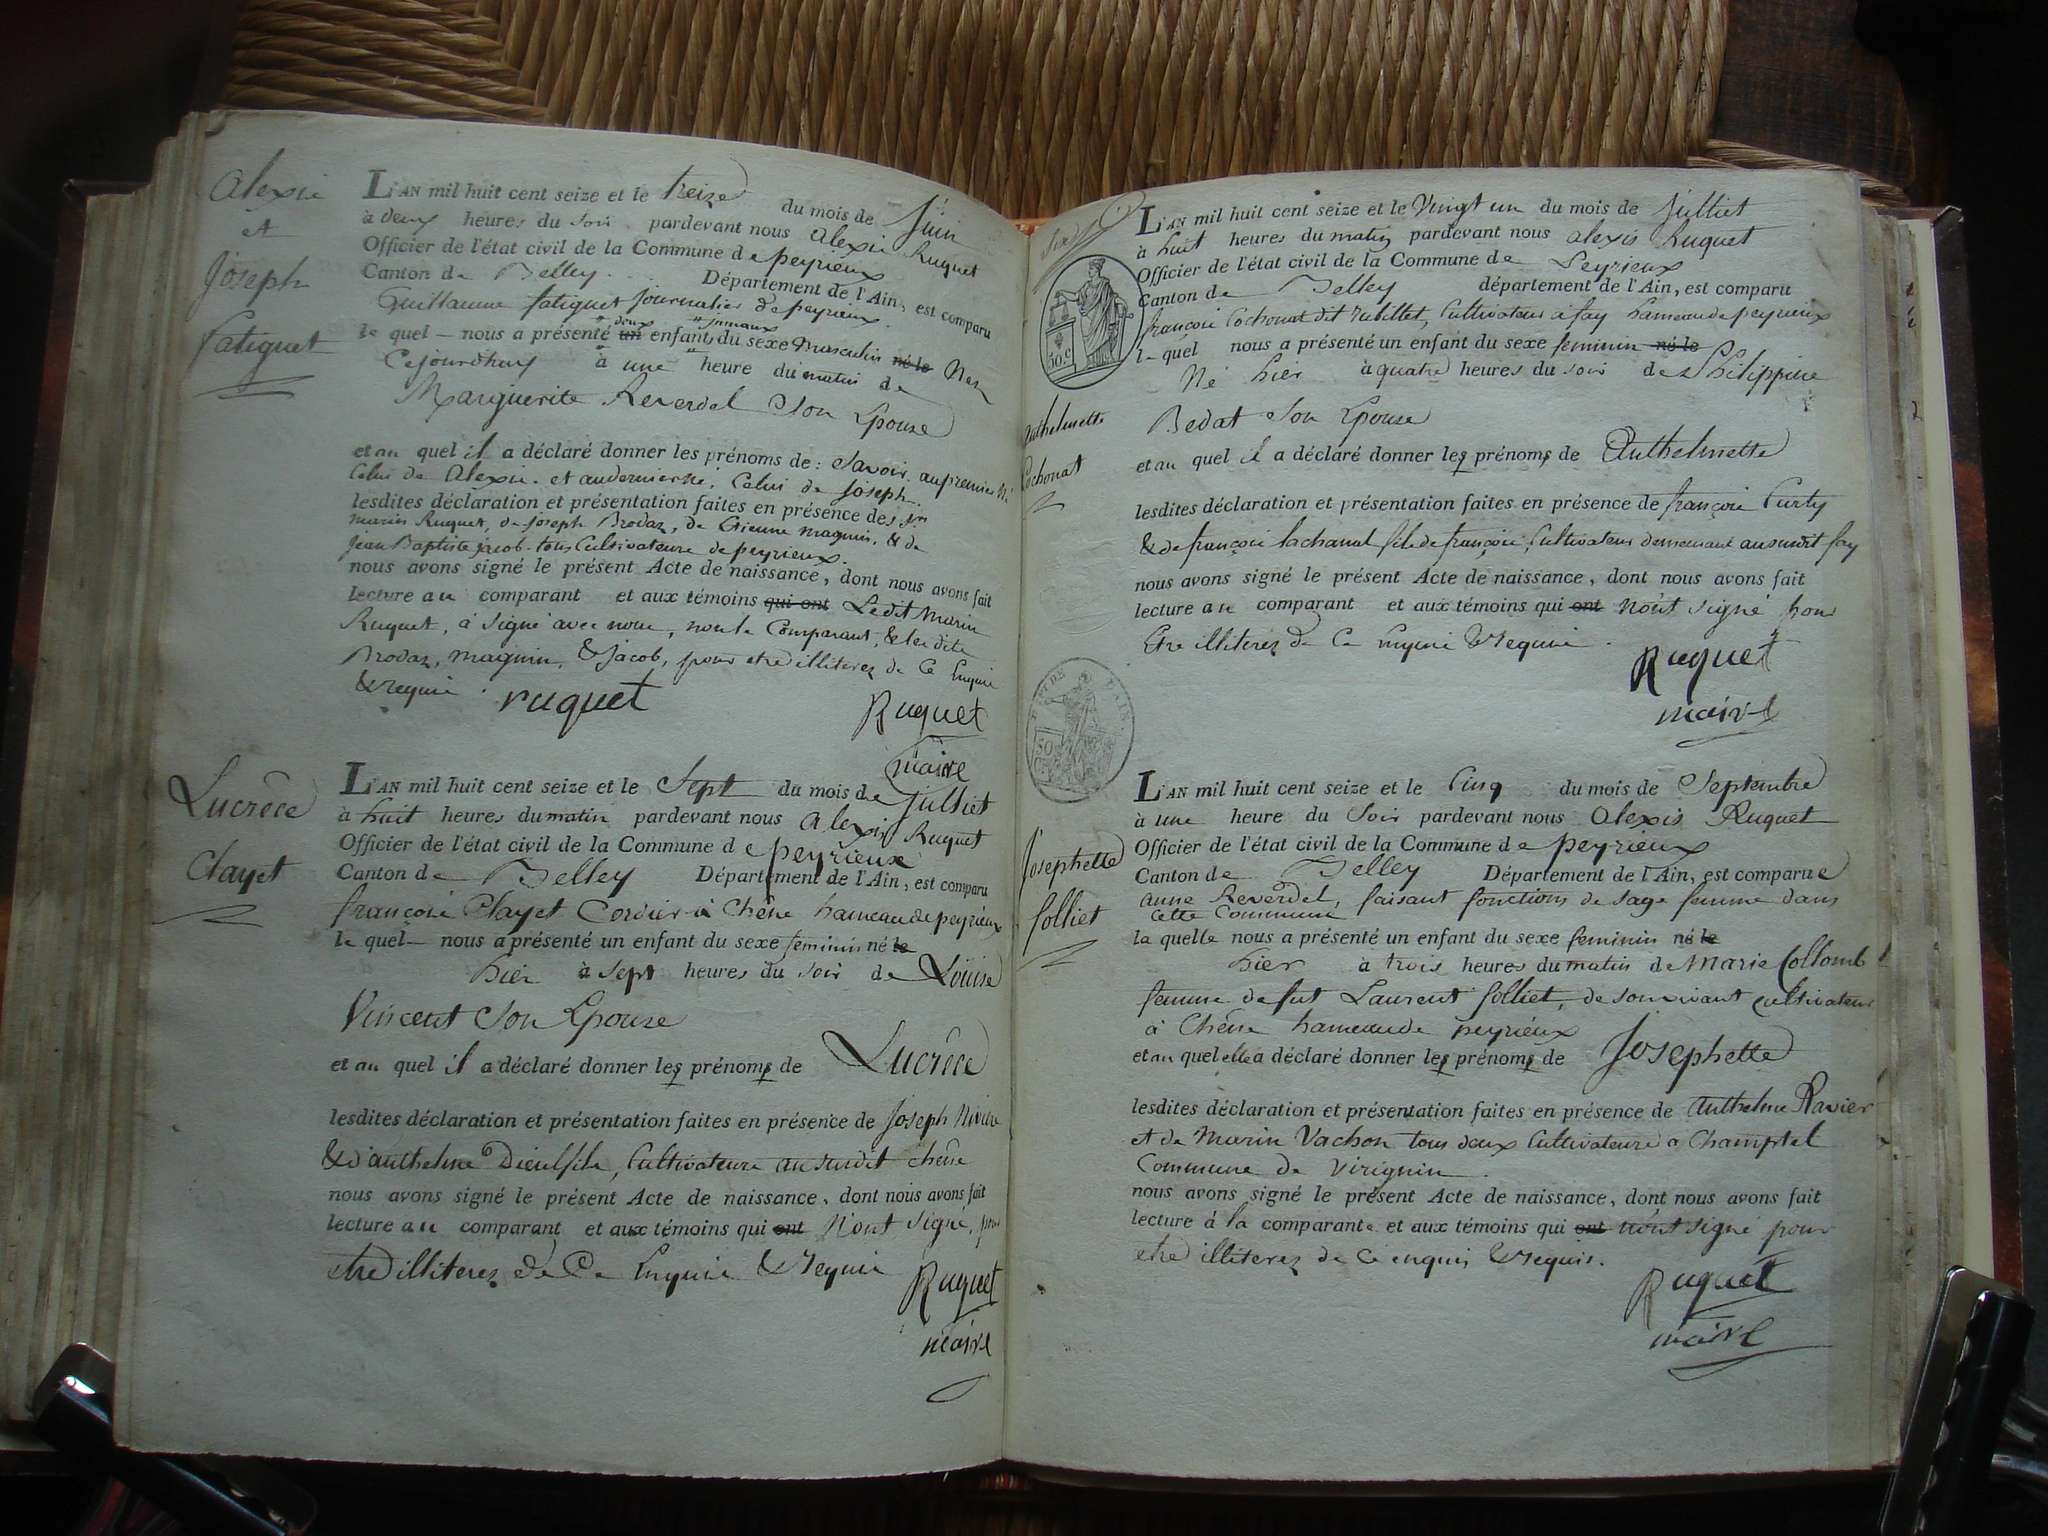 Alexis
et
Joseph
fatiguet
L'AN mil huit cent seize et le treize du mois de Juin
à deux heures du soir pardevant nous Alexis Ruquet
Officier de l'état civil de la Commune de peyrieux
Canton de Belley. Département de l'Ain, est comparu
Guillaume fatiguet journalier de peyrieux.
le quel nous a présenté un deux enfants jumaux du sexe Masculin né le Nez
Cejourdhuy à une heure du matin de
Marguerite Reverdel Son Epouse
et au quel il a déclaré donner les prénoms de : Savoir au premier né
Celui de Alexis. et au dernier né, Celui de joseph.
lesdites déclaration et présentation faites en présence des srs
marin Ruquet, de joseph Brodaz, de Etienne magnin, & de
Jean Baptiste jacob. tous Cultivateurs de peyrieux.
nous avons signé le présent Acte de naissance, dont nous avons fait
lecture au comparant et aux témoins qui ont Ledit Marin
Ruquet, à signé avec nous, non le Comparant, & les dits
Brodaz, magnin, & jacob, pour etre illiterez de Ce Enquis
& requis.
ruquet
Ruquet
maire
Lucrèce
Clayet
L'AN mil huit cent seize et le Sept du mois de julliet
à huit heures du matin pardevant nous alexis Ruquet
Officier de l'état civil de la Commune de peyrieux
Canton de Belley Département de l'Ain, est comparu
françois Clayet Cordier à Chêne hameau de peyrieux
le quel nous a présenté un enfant du sexe feminin né le
hier à sept heures du soir de Loüise
Vincent Son Epouse
et au quel il a déclaré donner les prénoms de Lucrèce
lesdites déclaration et présentation faites en présence de Joseph
& d'anthelme Cultivateurs au susdit chêne
nous avons signé le présent Acte de naissance, dont nous avons fait
lecture au comparant et aux témoins qui ont N'ont signé, pour
etre illiterez de Ce Enquis & requis
Ruquet
maire
Six
50.c
Anthelmette
Cochonat
L'AN mil huit cent seize et le Vingt un du mois de julliet
à huit heures du matin pardevant nous alexis Ruquet
Officier de l'état civil de la Commune de Peyrieux
Canton de Belley département de l'Ain, est comparu
françois Cochonat dit rubellet, Cultivateur à fay hameau de peyrieux
le quel nous a présenté un enfant du sexe feminin né le
Né hier à quatre heures du soir de Philippine
Bedat Son Epouse
et au quel il a déclaré donner les prénoms de Anthelmette
lesdites déclaration et présentation faites en présence de françois Curty
& de françois lachanal fils de françois, Cultivateurs demeurant au susdit fay
nous avons signé le présent Acte de naissance, dont nous avons fait
lecture au comparant et aux témoins qui ont n'ont signé pour
Etre illiterez de Ce enquis & requis.
Ruquet
maire
50
Josephette
Solliet
L'AN mil huit cent seize et le Cinq du mois de Septembre
à une heure du Soir pardevant nous Alexis Ruquet
Officier de l'état civil de la Commune de peyrieux
Canton de Belley Département de l'Ain, est comparue
anne Reverdel, faisant fonctions de sage femme dans
cette Commune
la quelle nous a présenté un enfant du sexe feminin né le
hier à trois heures du matin de Marie Collomb
femme de fut Laurent Solliet, de son vivant cultivateur
à Chêne hameau de peyrieux
et au quel elle a déclaré donner les prénoms de Josephette
lesdites déclaration et présentation faites en présence de Anthelme Ravier
et de Marin Vachon tous deux Cultivateurs a Champtel
Commune de Virignin.
nous avons signé le présent Acte de naissance, dont nous avons fait
lecture à la comparante et aux témoins qui ont n'ont signé pour
etre illiterez de Ce enquis & requis.
Ruquet
maire